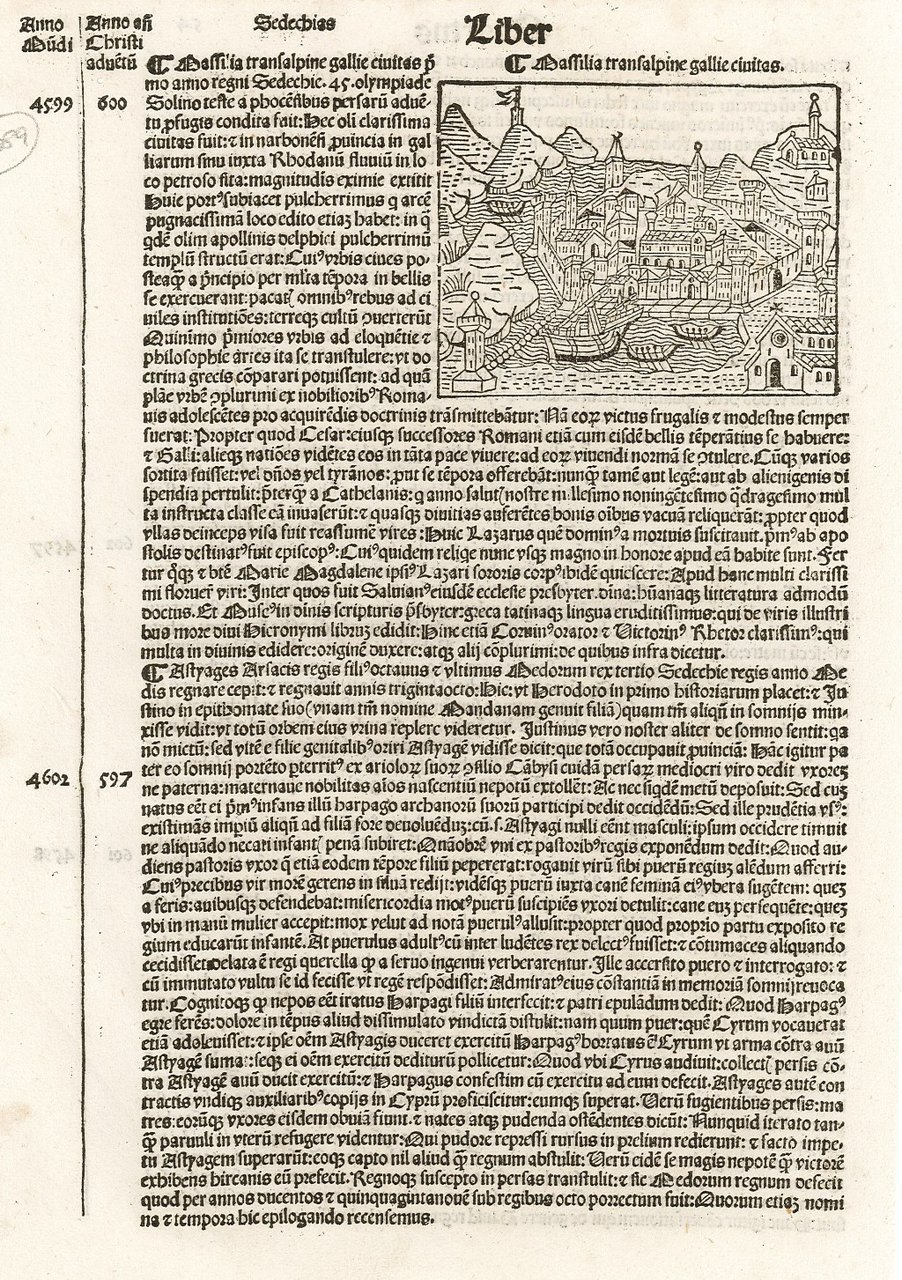 Anno Mūdi
Anno añ Christi aduētū
Sedechias
Liber
¶ Massilia transalpine gallie ciuitas.
¶ Massilia transalpine gallie ciuitas p̄
mo anno regni Sedechie. 45. olympiade
4599 600 Solino teste a phocēsibus persarū aduē-
tu ꝓfugis condita fuit: Hec oli clarissima
ciuitas fuit: ⁊ in narbonēsi ꝓuincia in gal
liarum sinu iuxta Rhodanū fluuiū in lo
co petroso sita: magnitudis eximie extitit
Huic portꝰ subiacet pulcherrimus q arcē
pugnacissimā loco edito etiaꝫ habet: in q̄
qdē olim apollinis delphici pulcherrimū
templū structū erat: Cuiꝰ vrbis ciues po-
steaꝙ̄ a p̄ncipio per ml̄ta tēpora in bellis
se exercuerant: pacatꝭ omnibꝰ rebus ad ci
uiles institutiōes: terreqꝫ cultū ꝯuerterūt
Quinimo p̄miores vrbis ad eloquētie ⁊
philosophie artes ita se transtulere: vt do
ctrina grecis cōparari potuissent: ad quā
plāe vrbē ꝯplurimi ex nobilioribꝰ Roma-
nis adolescētes pro acquirēdis doctrinis trāsmittebātur: Nā eoꝝ victus frugalis ⁊ modestus semper
fuerat: Propter quod Cesar: eiusqꝫ successores Romani etiā cum eisdē bellis tēperātius se habuere:
⁊ Galli: alieqꝫ natiōes vidētes eos in tāta pace viuere: ad eoꝝ viuendi normā se ꝯtulere. Cūqꝫ varios
sortita fuisset: vel dn̄os vel tyrānos: ꝓut se tēpora offerebāt: nunꝙ̄ tamē aut legē: aut ab alienigenis di
spendia pertulit: p̄terꝙ̄ a Cathelanis: q anno salutꝭ nostre millesimo noningētesimo q̄dragesimo mul
ta instructa classe eā inuaserūt: ⁊ quasqꝫ diuitias auferētes bonis oībus vacuā reliquerāt: ꝓpter quod
vllas deinceps visa fuit reassumē vires: Huic Lazarus quē dominꝰ a mortuis suscitauit. p̄mꝰ ab apo
stolis destinatꝰ fuit episcopꝰ: Cuiꝰ quidem relige nunc vsqꝫ magno in honore apud eā habite sunt. Fer
tur q̄qꝫ ⁊ btē Marie Magdalene ipsiꝰ Lazari sororis corpꝰ ibidē quiescere: Apud hanc multi clarissi
mi floruer̄ viri: Inter quos fuit Saluianꝰ eiusdē ecclesie presbyter. diīna: hūanaqꝫ litteratura admodū
doctus. Et Museꝰ in diīnis scripturis p̄sbyter: greca tatinaqꝫ lingua eruditissimus: qui de viris illustri
bus more diui Hieronymi libruꝫ edidit: Hinc etiā Coruinꝰ orator ⁊ Victorinꝰ Rhetor clarissimꝰ: qui
multa in diuinis edidere: originē duxere: atqꝫ alij cōplurimi: de quibus infra dicetur.
¶ Astyages Arsacis regis filiꝰ octauus ⁊ vltimus Medorum rex tertio Sedechie regis anno Me
dis regnare cepit: ⁊ regnauit annis trigintaocto: Hic: vt Herodoto in primo historiarum placet: ⁊ Ju
stino in epithomate suo (vnam tm̄ nomine Mandanam genuit filiā) quam tm̄ aliqn̄ in somnijs min-
xisse vidit: vt totū orbem eius vrina replere videretur. Justinus vero noster aliter de somno sentit: qa
nō mictū: sed vitē e filie genitalibꝰ oriri Astyagē vidisse dicit: que totā occupauit ꝓuinciā: Hāc igitur pa
4602 597 ter eo somnij portēto p̄territꝰ ex arioloꝝ suoꝝ ꝯsilio Cābysi cuidā persaꝝ mediocri viro dedit vxoreꝫ
ne paterna: maternaue nobilitas aīos nascentiū nepotū extollēt: Ac nec siqdē metū deposuit: Sed cuꝫ
natus eēt ei p̄mꝰ infans illū harpago archanorū suorū participi dedit occidēdū: Sed ille prudētia vsꝰ:
existimās impiū aliqn̄ ad filiā fore deuoluēduꝫ: cū. s. Astyagi nulli eēnt masculi: ipsum occidere timuit
ne aliquādo necati infantꝭ penā subiret: Quāobrē vni ex pastoribꝰ regis exponēdum dedit: Quod au-
diens pastoris vxor q̄ etiā eodem tēpore filiū pepererat: rogauit virū sibi puerū regiuꝫ alēdum afferri:
Cuiꝰ precibus vir morē gerens in siluā redijt: vidēsqꝫ puerū iuxta canē feminā eiꝰ vbera sugētem: queꝫ
a feris: auibusqꝫ defendebat: misericordia motꝰ puerū suscipiēs vxori detulit: cane euꝫ persequēte: queꝫ
vbi in manū mulier accepit: mox velut ad notā puerulꝰ allusit: propter quod proprio partu exposito re
gium educarūt infantē. At puerulus adultꝰ cū inter ludētes rex delectꝰ fuisset: ⁊ cōtumaces aliquando
cecidisset: delata ē regi querella ꝙ a seruo ingenui verberarentur. Ille accersito puero ⁊ interrogato: ⁊
cū immutato vultu se id fecisse vt regē respōdisset: Admiratꝰ eius cōstantiā in memoriā somnij reuoca
tur. Cognitoqꝫ ꝙ nepos eēt iratus Harpagi filiū interfecit: ⁊ patri epulādum dedit: Quod Harpagꝰ
egre ferēs: dolore in tēpus aliud dissimulato vindictā distulit: nam quum puer: quē Cyrum vocauerat
etiā adoleuisset: ⁊ ipse oēm Astyagis duceret exercitū Harpagꝰ hortatus ē Cyrum vt arma cōtra auū
Astyagē sumat: seqꝫ ei oēm exercitū dediturū pollicetur: Quod vbi Cyrus audiuit: collectꝭ persis cō-
tra Astyagē auū ducit exercitū: ⁊ Harpagus confestim cū exercitu ad eum defecit. Astyages autē con
tractis vndiqꝫ auxiliaribꝰ copijs in Cyprū proficiscitur: eumqꝫ superat. Verū fugientibus persis: ma
tres: eorūqꝫ vxores eisdem obuiā fiunt: ⁊ nates atqꝫ pudenda ostēdentes dicūt: Nunquid iterato tan-
ꝙ̄ paruuli in vterū refugere videntur: Qui pudore repressi rursus in prelium redierunt: ⁊ facto impe-
tu Astyagem superarūt: eoqꝫ capto nil aliud ꝙ̄ regnum abstulit: Verū eidē se magis nepotē ꝙ̄ victorē
exhibens hircanis eū prefecit. Regnoqꝫ suscepto in persas transtulit: ⁊ sic Medorum regnum defecit
quod per annos ducentos ⁊ quinquagintanouē sub regibus octo porrectum fuit: Quorum etiaꝫ nomi
na ⁊ tempora hic epilogando recensemus.